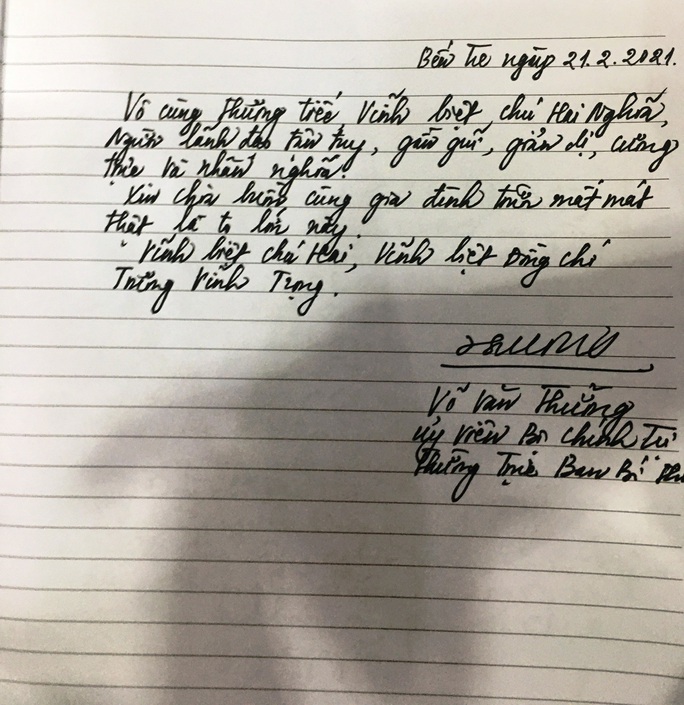 Bến Tre ngày 21.2.2021.
Vô cùng thương tiếc, Vĩnh biệt chú Hai Nghĩa,
Người lãnh đạo tận tụy, gần gũi, giản dị, cương
trực và nhân nghĩa.
Xin chia buồn cùng gia đình trước mất mát
thật là to lớn này.
Vĩnh biệt chú Hai, Vĩnh biệt Đồng chí
Trương Vĩnh Trọng.
Võ Văn Thưởng
Ủy viên Bộ Chính Trị
Thường Trực Ban Bí